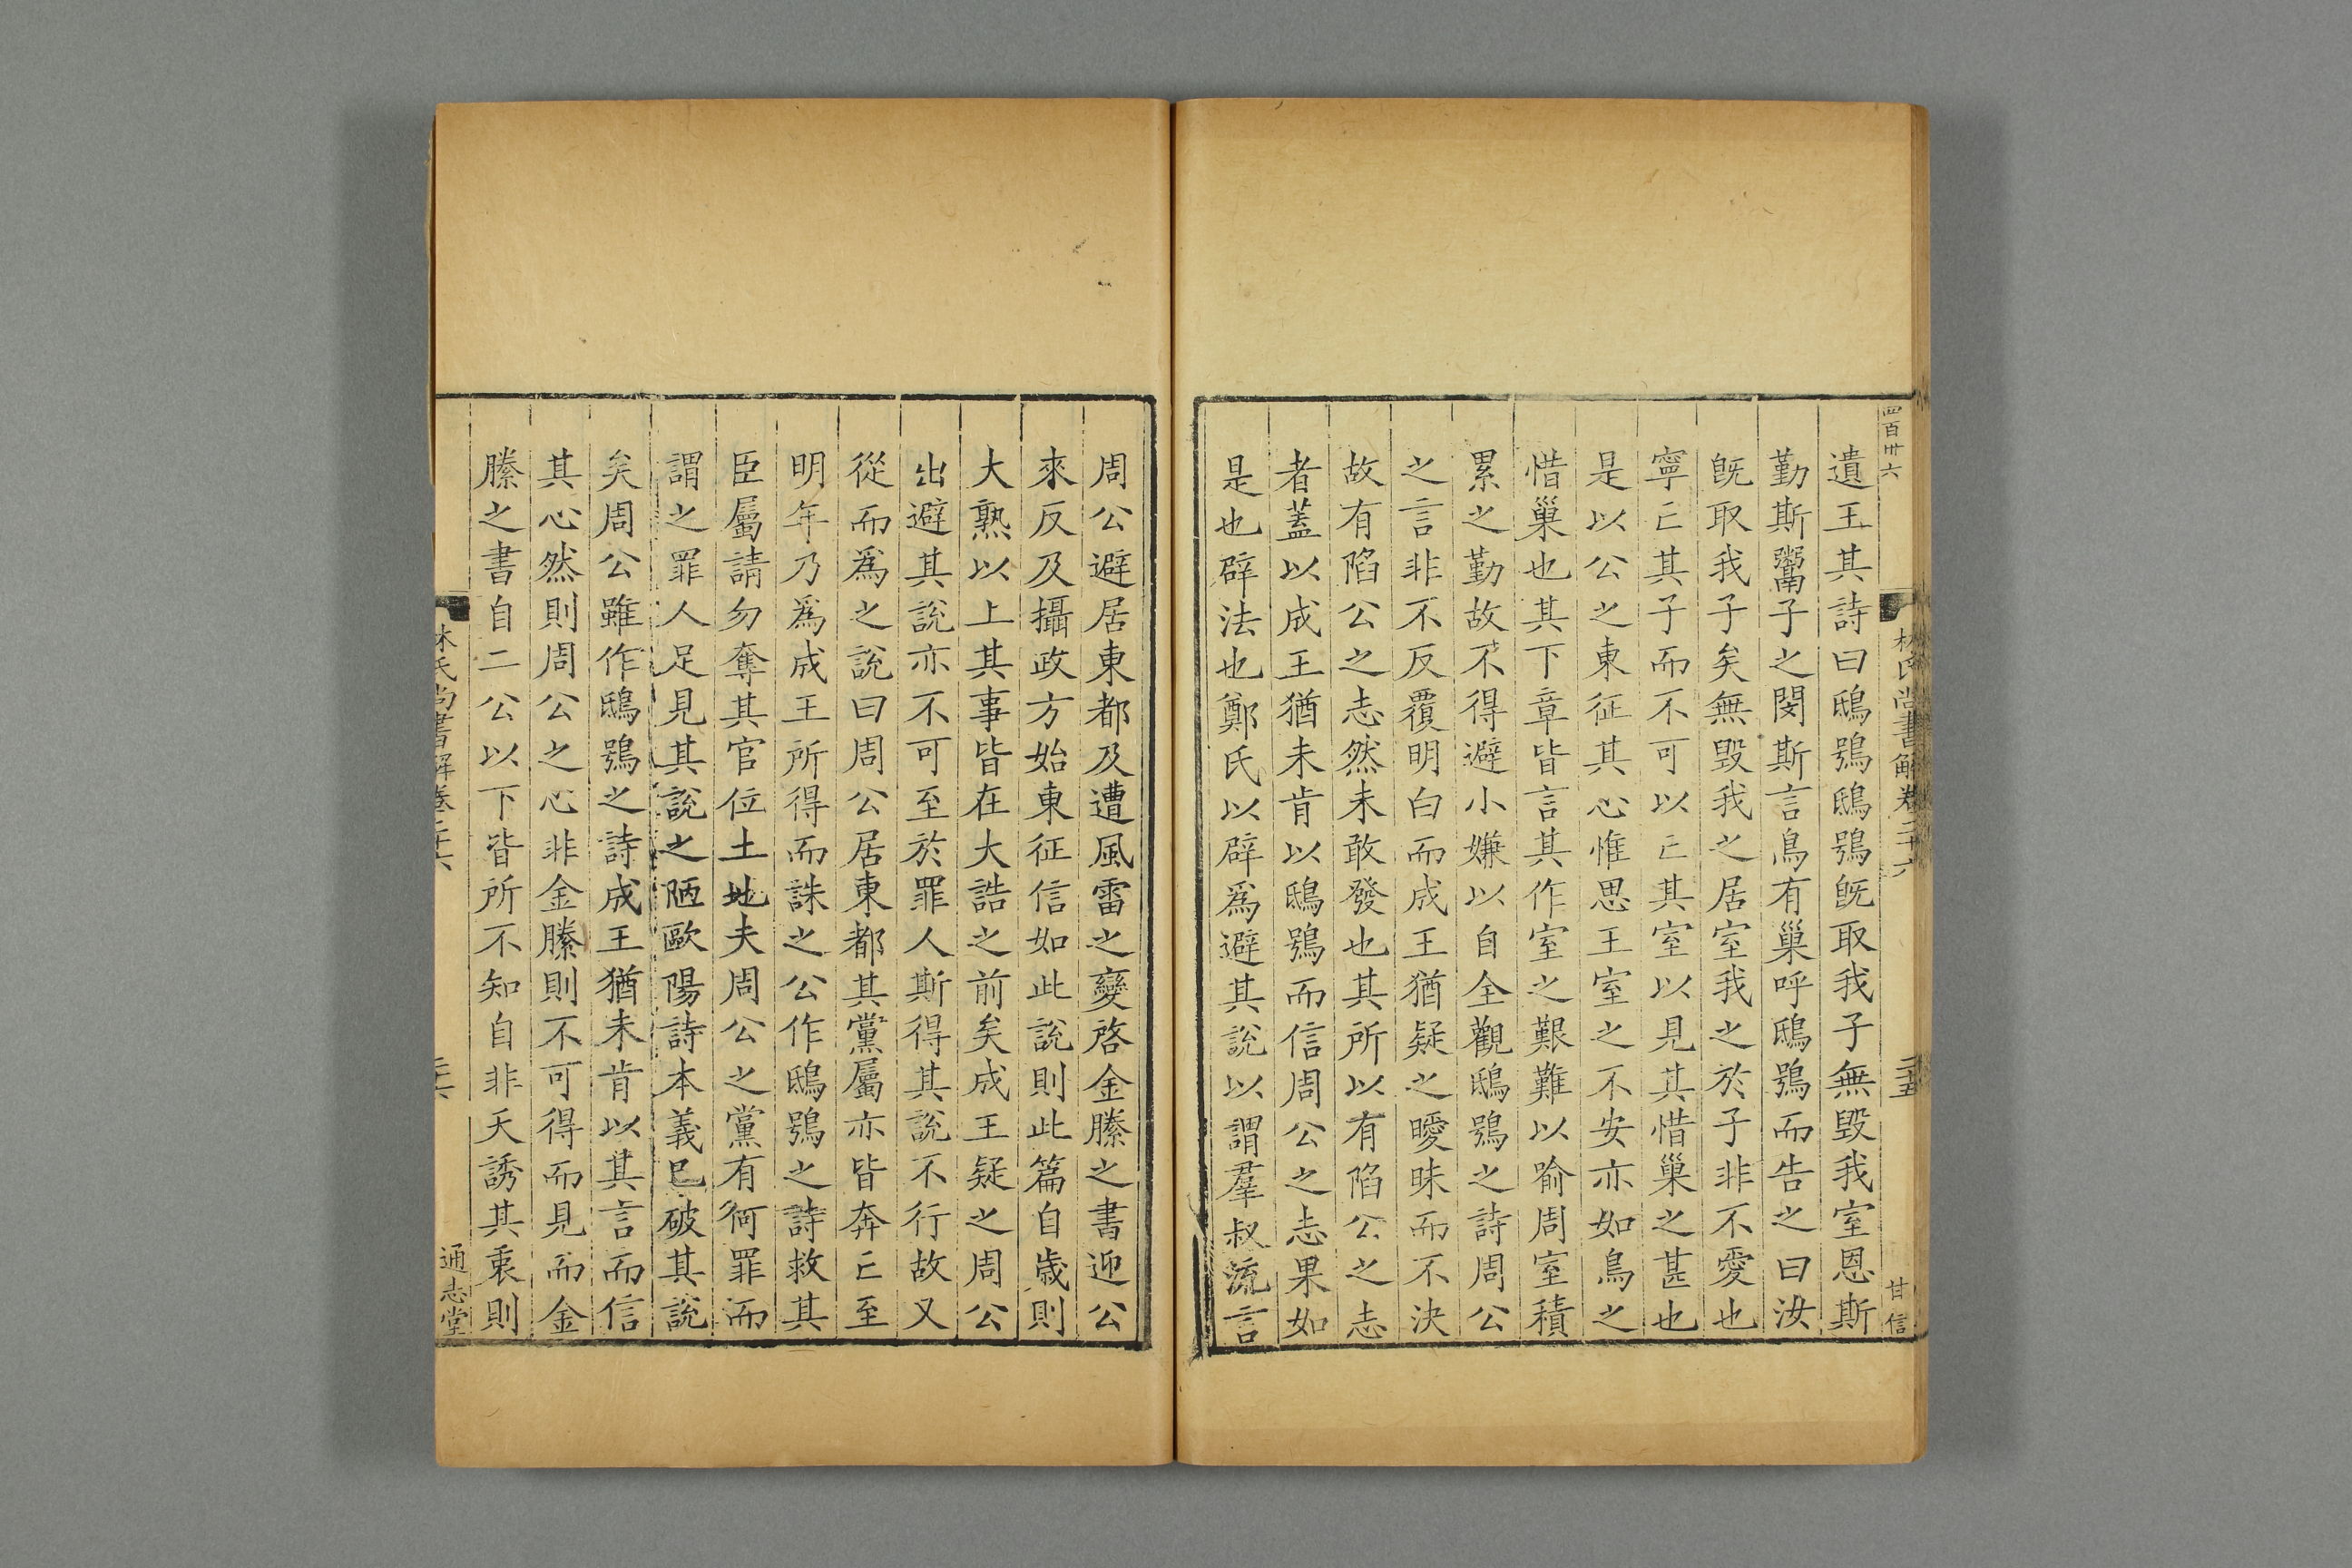 四百卅六
林氏尚書解卷二十六
二十五
甘信
遺王其詩曰鴟鴞鴟鴞既取我子無毀我室恩斯
勤斯鬻子之閔斯言鳥有巢呼鴟鴞而告之曰汝
既取我子矣無毀我之居室我之於子非不愛也
寧亡其子而不可以亡其室以見其惜巢之甚也
是以公之東征其心惟思王室之不安亦如鳥之
惜巢也其下章皆言其作室之艱難以喻周室積
累之勤故不得避小嫌以自全觀鴟鴞之詩周公
之言非不反覆明白而成王猶疑之曖昧而不決
故有陷公之志然未敢發也其所以有陷公之志
者蓋以成王猶未肯以鴟鴞而信周公之志果如
是也辟法也鄭氏以辟爲避其說以謂羣叔流言
周公避居東都及遭風雷之變啓金縢之書迎公
來反及攝政方始東征信如此說則此篇自歲則
大熟以上其事皆在大誥之前矣成王疑之周公
出避其說亦不可至於罪人斯得其說不行故又
從而爲之說曰周公居東都其黨屬亦皆奔亡至
明年乃爲成王所得而誅之公作鴟鴞之詩救其
臣屬請勿奪其官位土地夫周公之黨有何罪而
謂之罪人足見其說之陋歐陽詩本義已破其說
矣周公雖作鴟鴞之詩成王猶未肯以其言而信
其心然則周公之心非金縢則不可得而見而金
縢之書自二公以下皆所不知自非天誘其衷則
林氏尚書解卷二十六
二十六
通志堂